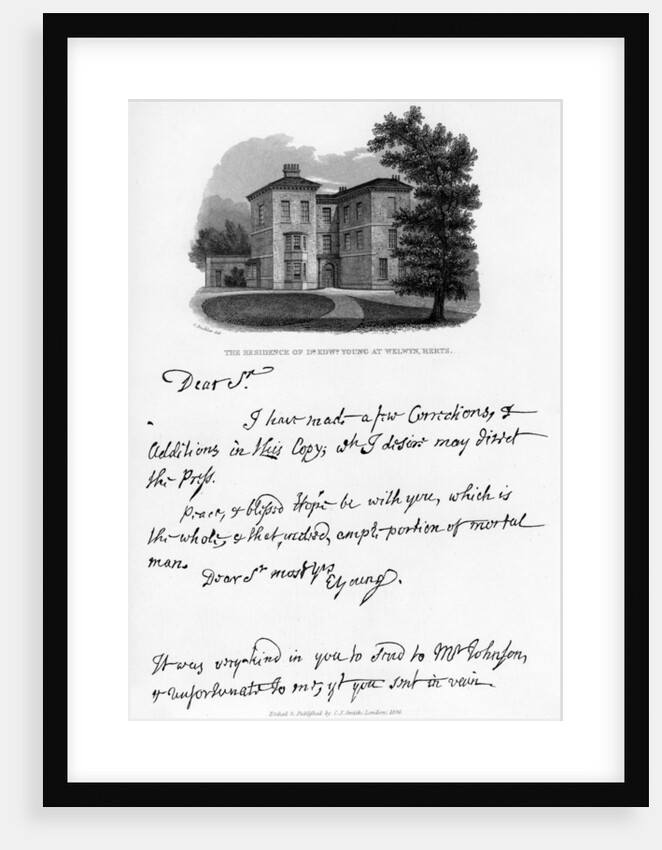 THE RESIDENCE OF Dr. EDWd. YOUNG AT WELWYN, HERTS.
Dear Sr.
I have made a few Corrections, &
Additions in this Copy; wh I desire may direct
the Press.
Peace, & blessed Hope be with you, which is
the whole, & that indeed, ample portion of mortal
man.
Dear Sr most yrs
EYoung.
It was very kind in you to send to Mr Johnson,
& unfortunate to me, yt you sent in vain.
Etched & Published by C. J. Smith, London, 1836